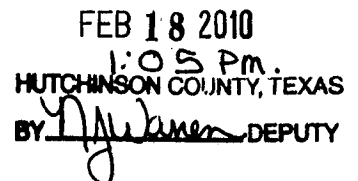 FEB 18 2010
1:05 Pm.
HUTCHINSON COUNTY, TEXAS
BY NJWarren DEPUTY